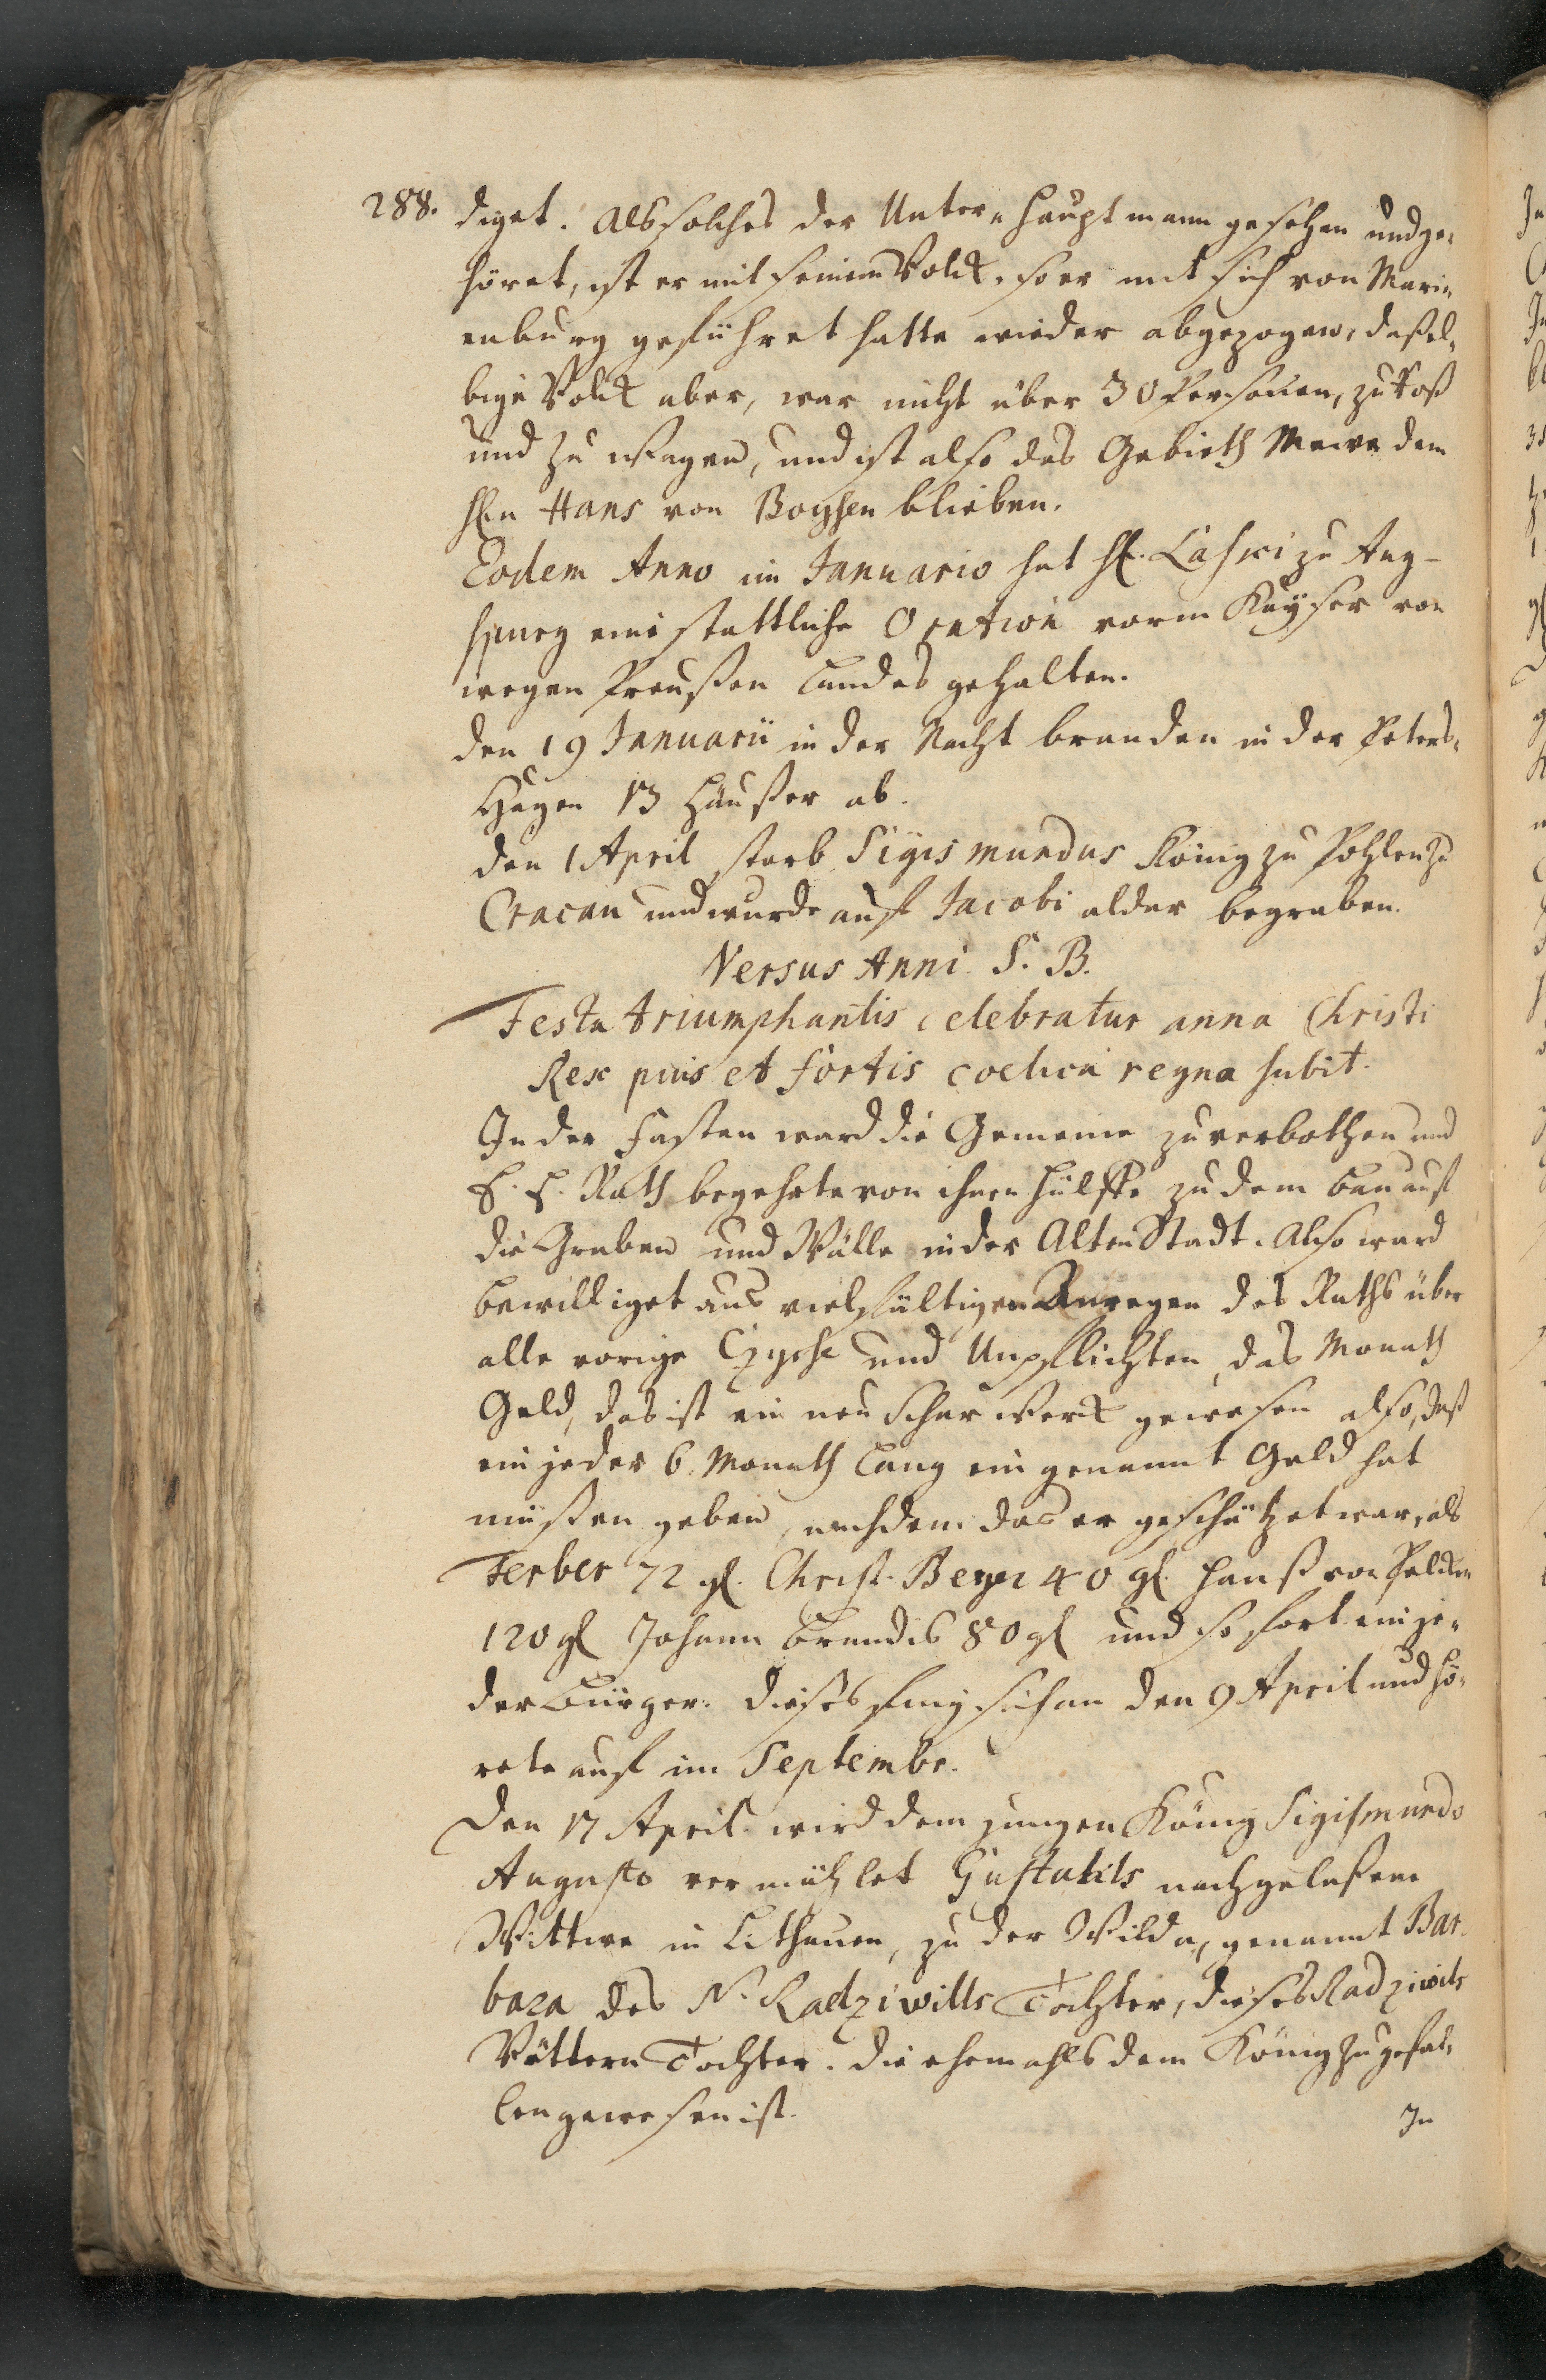 288. diget. Als solches der Unter-Hauptmann gesehen und ge-
höret, ist er mit seinem Volck, so er mit sich von Mari-
enburg geführet hatte wieder abgezogen, daßel-
bige Volck aber, war nicht über 30 Persohnen, zu Roß
und zu Wagen, und ist also das Gebieth Mewe dem
HEn Hans von Boysen blieben.
Eodem Anno im Januario hat H. Laski zu Aug-
spurg eine stattliche Oration vorm Kayser von
wegen Preußen Landes gehalten.
den 19 Januarii in der Nacht branden in der Peters-
Hagen 13 Häußer ab.
den 1 April starb Sigismundus König zu Pohlen zu
Cracau und wurde auf Jacobi aldar begraben.
Versus Anni. S. B.
Festa triumphantis celebratur anna Christi
Rex pius et fortis coelica regna subit.
In der Fasten ward die Gemeine zu verbothen und
E. E. Rath begehrte von ihnen Hülffe zu dem Bau auf
die Graben und Wälle in der Alten Stadt. Also ward
bewilliget aus vielfältigen Anregen des Raths über
alle vorige Czyse und Unpflichten, das Monath
Geld, das ist ein neu Scharwerck gewesen also, daß
ein jeder 6. Monath lang ein genannt Geld hat
müßen geben, nachdem das er geschätzet war, als
Ferber 72 gl. Christ. Beyer 40 gl. Hanß von Pelcken
120 gl Johann Brandes 80 gl und so fort ein je-
der Bürger. dieses fing sich an den 9 April und hö-
rete auf im Septembr.
Den 17 April wird dem jungen König Sigismundo
Augusto vermählet Gastolds nachgelaßene
Wittwe in Litthauen, zu der Wilda, genannt Bar-
bara des N. Radziwills Tochter, dieses Radziwils
Vättern Tochter. die ehemahls dem König zu gefal-
len gewesen ist.
In